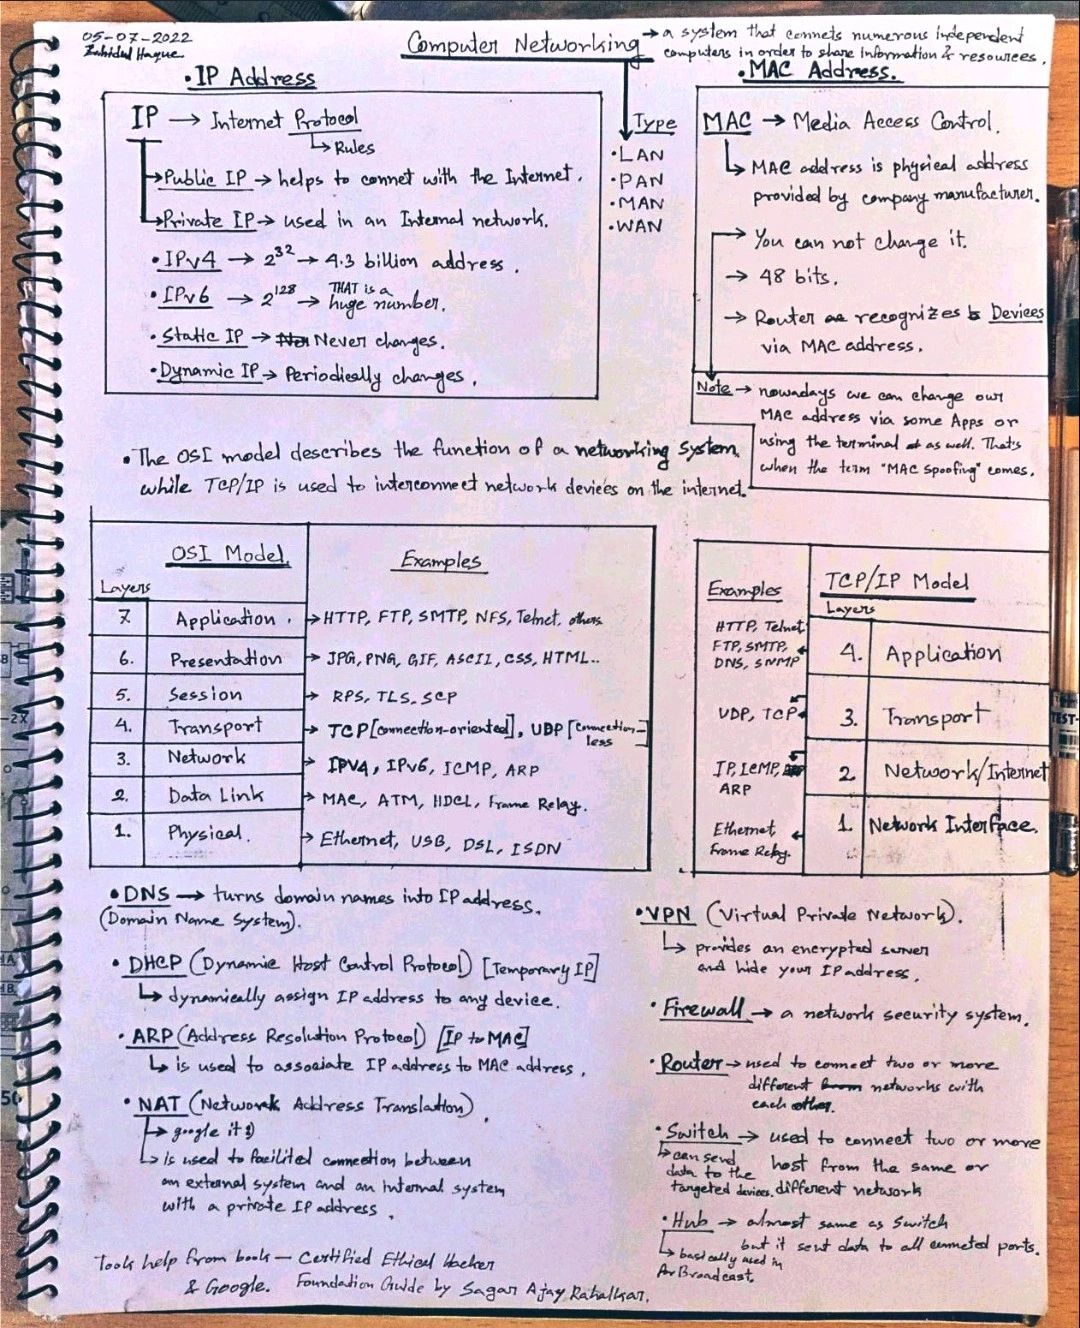 05-07-2022
Zahidul Haque.
Computer Networking → a system that connets numerous independent
computers in order to share information & resources.
• IP Address
IP → Internet Protocol
↳ Rules
→ Public IP → helps to connet with the Internet.
→ Private IP → used in an Internal network.
• IPv4 → 2^32 → 4.3 billion address.
• IPv6 → 2^128 → THAT is a
huge number.
• Static IP → Never changes.
• Dynamic IP → Periodically changes.
Type
• LAN
• PAN
• MAN
• WAN
• MAC Address.
MAC → Media Access Control.
↳ MAC address is physical address
provided by company manufacturer.
→ You can not change it.
→ 48 bits.
→ Router recognizes Devices
via MAC address.
Note → nowadays we can change our
MAC address via some Apps or
using the terminal as well. That's
when the term "MAC spoofing" comes.
• The OSI model describes the function of a networking system,
while TCP/IP is used to interconnect network devices on the internet.
OSI Model Examples
Layers
7. Application. → HTTP, FTP, SMTP, NFS, Telnet, others
6. Presentation → JPG, PNG, GIF, ASCII, CSS, HTML..
5. Session → RPS, TLS, SCP
4. Transport → TCP [connection-oriented], UDP [connection-
less]
3. Network → IPV4, IPv6, ICMP, ARP
2. Data Link → MAC, ATM, HDCL, Frame Relay.
1. Physical. → Ethernet, USB, DSL, ISDN
Examples TCP/IP Model
Layers
HTTP, Telnet
FTP, SMTP,
DNS, SNMP
4. Application
UDP, TCP 3. Transport
IP, ICMP,
ARP
2 Network/Internet
Ethernet,
Frame Relay.
1. Network Interface.
• DNS → turns domain names into IP address.
(Domain Name System).
• DHCP (Dynamic Host Control Protocol) [Temporary IP]
↳ dynamically assign IP address to any device.
• ARP (Address Resolution Protocol) [IP to MAC]
↳ is used to assosiate IP address to MAC address.
• NAT (Network Address Translation)
↳ google it :)
↳ is used to facilited connection between
an external system and an internal system
with a private IP address.
• VPN (Virtual Private Network).
↳ provides an encrypted surver
and hide your IP address.
• Firewall → a network security system.
• Router → used to connect two or more
different networks with
each other.
• Switch → used to connect two or more
host from the same or
different network
↳ can send
data to the
targeted devices.
• Hub → almost same as Switch
but it sent data to all conneted ports.
↳ basically used in
Broadcast.
Tools help from book — Certified Ethical Hacker
& Google. Foundation Guide by Sagar Ajay Rahalkar.